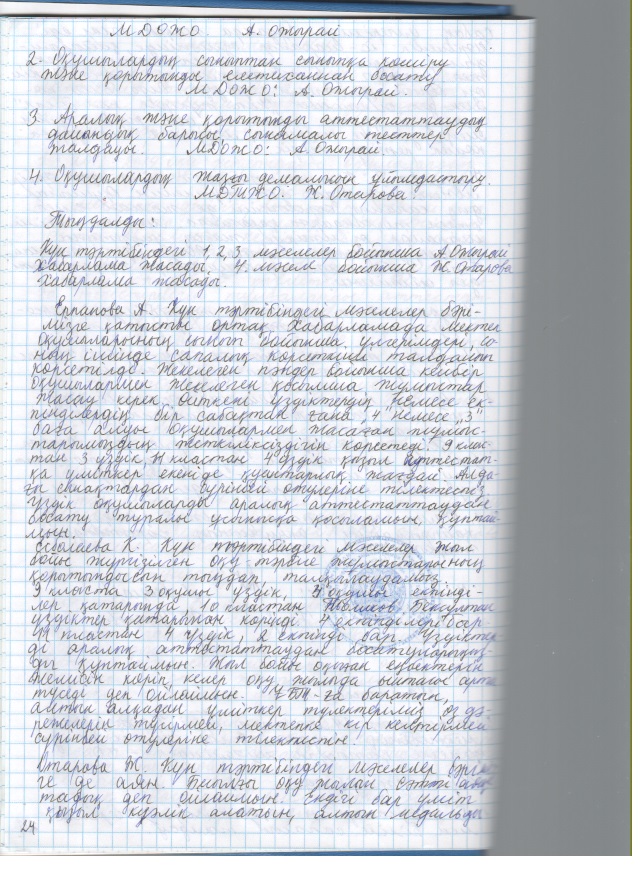 МДОЖО А. Ожырай
2. Оқушылардың сыныптан сыныпқа көшіру
және қорытынды емтиханнан босату
МДОЖО: А. Ожырай.
3. Аралық және қорытынды аттестаттаудың
дайындық барысы, сынамалы тесттер
талдауы. МДОЖО: А Ожырай
4. Оқушылардың жазғы демалысын ұйымдастыру.
МДТЖО. Ж. Отарова
Тыңдалды:
Күн тәртібіндегі 1, 2, 3 мәселелер бойынша А Ожырай
хабарлама жасады, 4. мәсел бойынша Ж. Отарова
хабарлама жасады.
Ерпапова А. Күн тәртібіндегі мәселелер бәрі-
мізге қатысты ортақ. Хабарламада мектеп
оқушыларының сынып бойынша үлгерімдері, со-
ның ішінде сапалық көрсеткіші талданып
көрсетілді. Жекелеген пәндер бойынша кейбір
оқушылармен жекелеген қосымша жұмыстар
жасау керек өйткені үздіктердің немесе ек-
пінділердің бір сабақтан ғана „4" немесе „3"
баға алуы оқушылармен жасаған жұмыс-
тарымыздың жеткіліксіздігін көрсетеді. 9 клас-
тан 3 үздік, 11 кластан 4 үздік қызыл аттестат-
қа үміткер екендігі қуантарлық жағдай. Алда-
ғы сынақтардан сүрінбей өтулеріне тілектеспіз
Үздік оқушыларды аралық аттестаттаудан
босату туралы ұсынысқа қосыламын, құптай-
мын.
К. Күн тәртібіндегі мәселелер жыл
бойы жүргізілген оқу-тәрбие жұмыстарының
қорытындысын тыңдап, талқылаудамыз.
9 класта 3 оқушы үздік, 4 оқушы екпінді-
лер қатарында, 10 кластан Бексұлтан
үздіктер қатарынан көрінді. 4 екпінділері бар.
11 кластан 4 үздік, 2 екпінді бар. Үздіктер
ді аралық аттестаттаудан босатуларыңыз-
ды құптаймын. Жыл бойы оқыған еңбектерін
жемісін көріп, келер оқу жылында арта
түседі деп ойлаймын. ҰБТ-ға баратын,
алтын алқадан үміткер түлектеріміз өз дә-
режелерін түсірмей, мектепке кір келтірмей
сүрінбей өтулеріне тілектеспін.
Отарова Ж. Күн тәртібіндегі мәселелер бәрімі
ге де аян. Биылғы оқу жылын сәтті аяқ
тадық деп ойлаймын. Ендігі бар үміт
қызыл куәлік алатын, алтын медальды
24